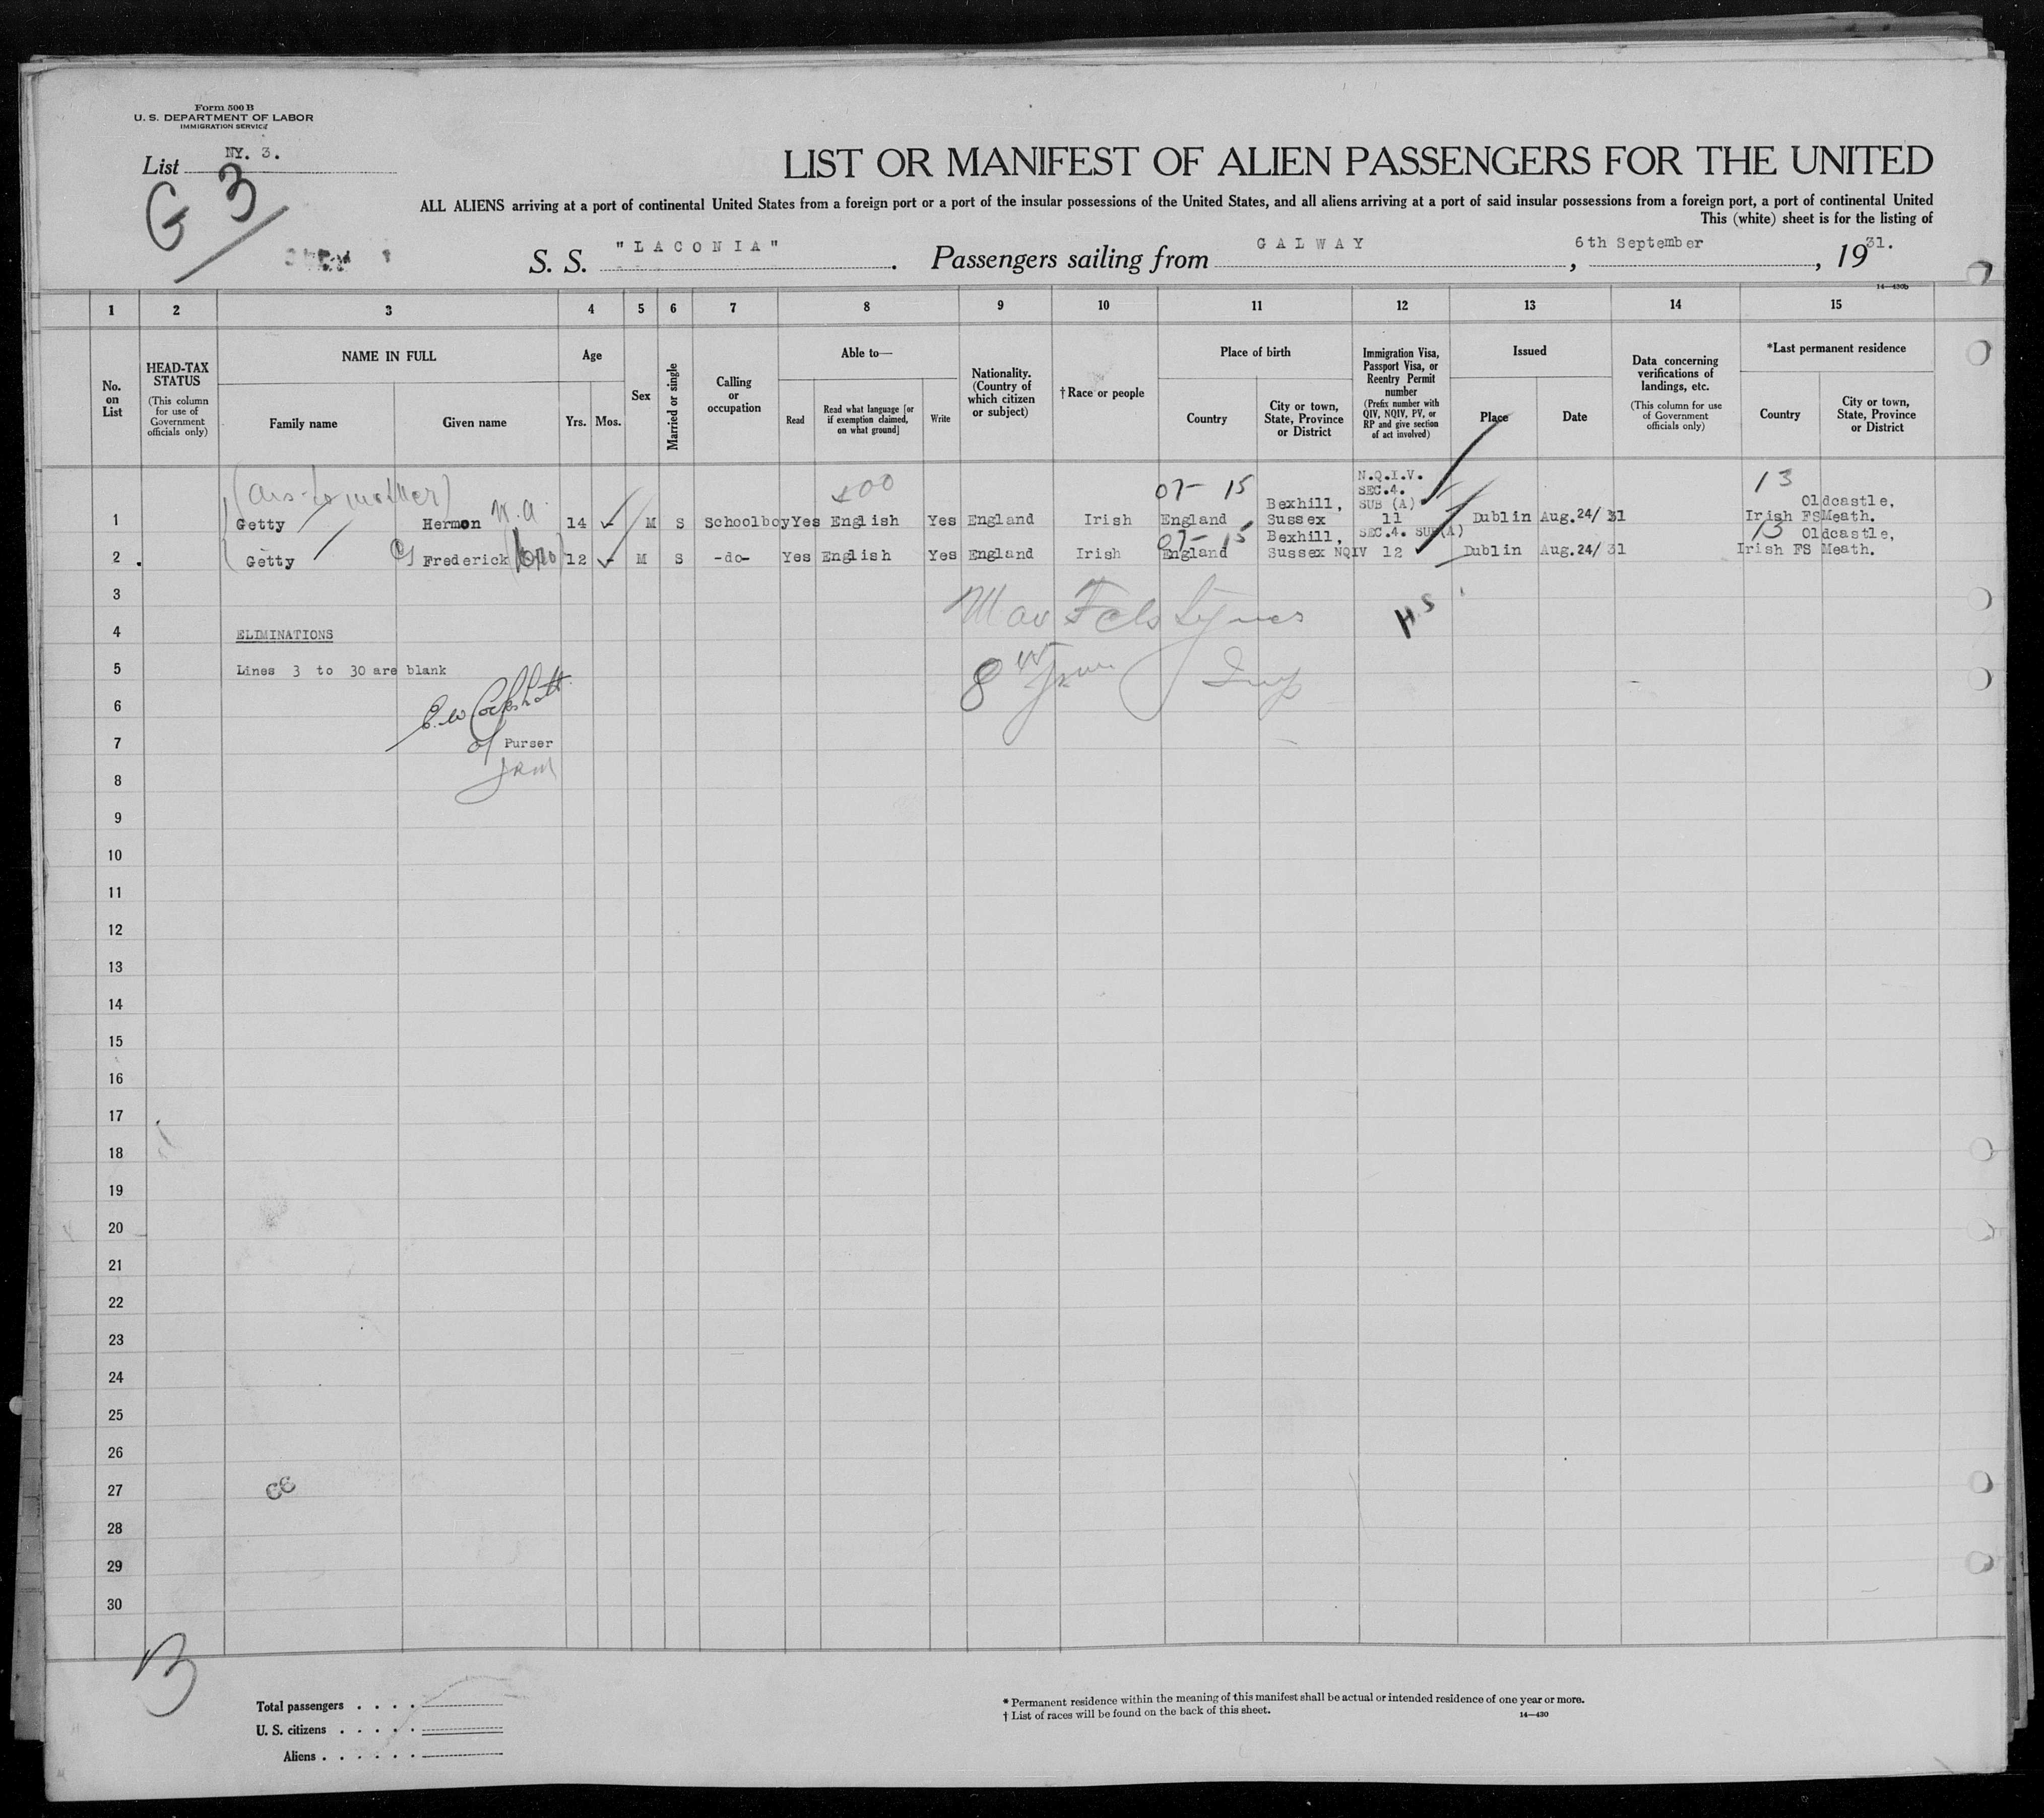 Form 500 B
U. S. DEPARTMENT OF LABOR
IMMIGRATION SERVICE
List NY. 3.
G 3
LIST OR MANIFEST OF ALIEN PASSENGERS FOR THE UNITED
ALL ALIENS arriving at a port of continental United States from a foreign port or a port of the insular possessions of the United States, and all aliens arriving at a port of said insular possessions from a foreign port, a port of continental United
This (white) sheet is for the listing of
S. S. "LACONIA". Passengers sailing from GALWAY, 6th September, 1931.
14—430b
1 2 3 4 5 6 7 8 9 10 11 12 13 14 15
No. on List
HEAD-TAX STATUS (This column for use of Government officials only)
NAME IN FULL
Family name
Given name
Age
Yrs. Mos.
Sex
Married or single
Calling or occupation
Able to—
Read
Read what language [or if exemption claimed, on what ground]
Write
Nationality. (Country of which citizen or subject)
† Race or people
Place of birth
Country
City or town, State, Province or District
Immigration Visa, Passport Visa, or Reentry Permit number (Prefix number with QIV, NQIV, PV, or RP and give section of act involved)
Issued
Place
Date
Data concerning verifications of landings, etc. (This column for use of Government officials only)
*Last permanent residence
Country
City or town, State, Province or District
07- 15 N.Q.I.V. SEC.4. 13
1 Getty Hermon 14 - M S Schoolboy Yes English Yes England Irish England Bexhill, Sussex SUB (A) 11 Dublin Aug.24/31 Irish FS Oldcastle, Meath.
07- 15 13
2 Getty Frederick 12 - M S -do- Yes English Yes England Irish England Bexhill, Sussex SEC.4. SUB(A) NQIV 12 Dublin Aug.24/31 Irish FS Oldcastle, Meath.
3
HS
4 ELIMINATIONS
5 Lines 3 to 30 are blank
6
7 Purser
8
9
10
11
12
13
14
15
16
17
18
19
20
21
22
23
24
25
26
27
28
29
30
B
Total passengers . . . .
U. S. citizens . . . . .
Aliens . . . . . .
* Permanent residence within the meaning of this manifest shall be actual or intended residence of one year or more.
† List of races will be found on the back of this sheet.
14—430